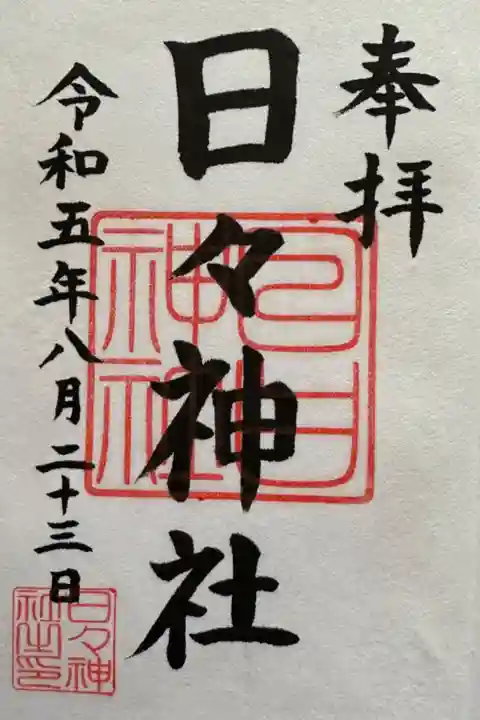 奉拝
日々神社
令和五年八月二十三日
日日
神社
日々神
社之印